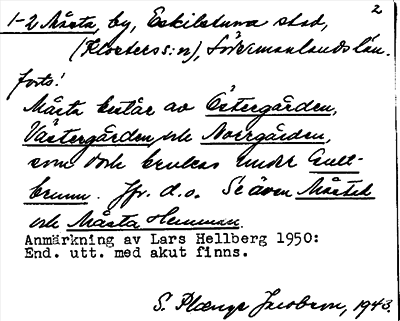 2
1-2 Mårta, by, Eskilstuna stad,
(Klosters s:n), Södermanlands län.
forts!
Mårta består av Östergården,
Västergården, och Norrgården,
som dock brukas under Gull-
brunn. Jfr. d.o. Se även
och Mårta Hemman.
Anmärkning av Lars Hellberg 1950:
End. utt. med akut finns.
S. Jacobson, 1943.